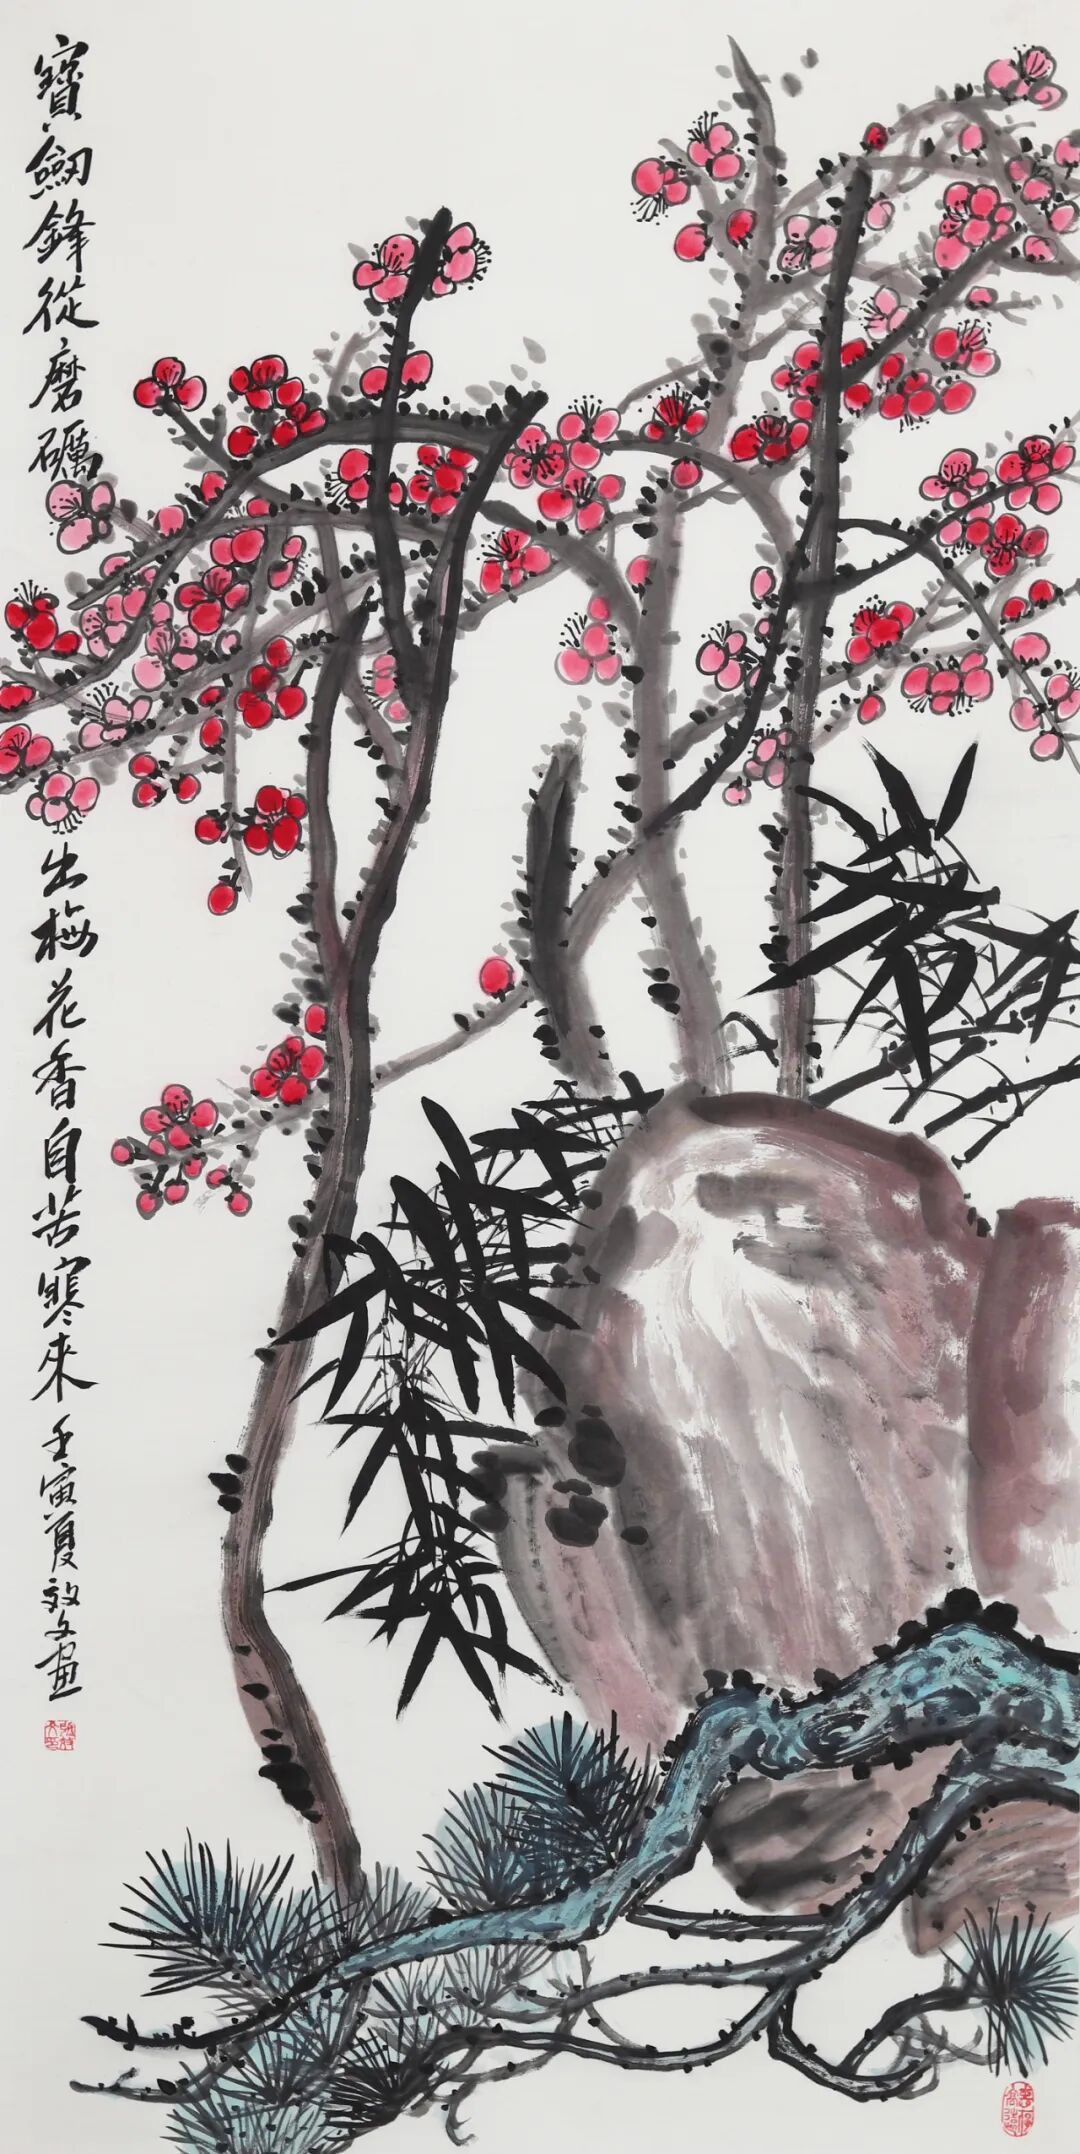 寶劒鋒從磨礪出梅花香自苦寒來壬寅夏效文畫